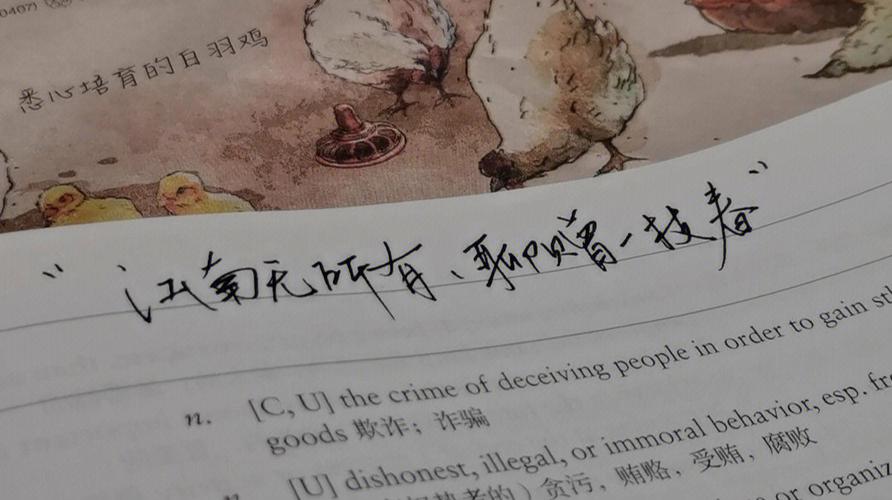 0407)
悉心培育的白羽鸡
“江南无所有、聊赠一枝春”
n. [C, U] the crime of deceiving people in order to gain
goods 欺诈；诈骗
[U] dishonest, illegal, or immoral behavior, esp.
的）贪污，贿赂，受贿，腐败
or